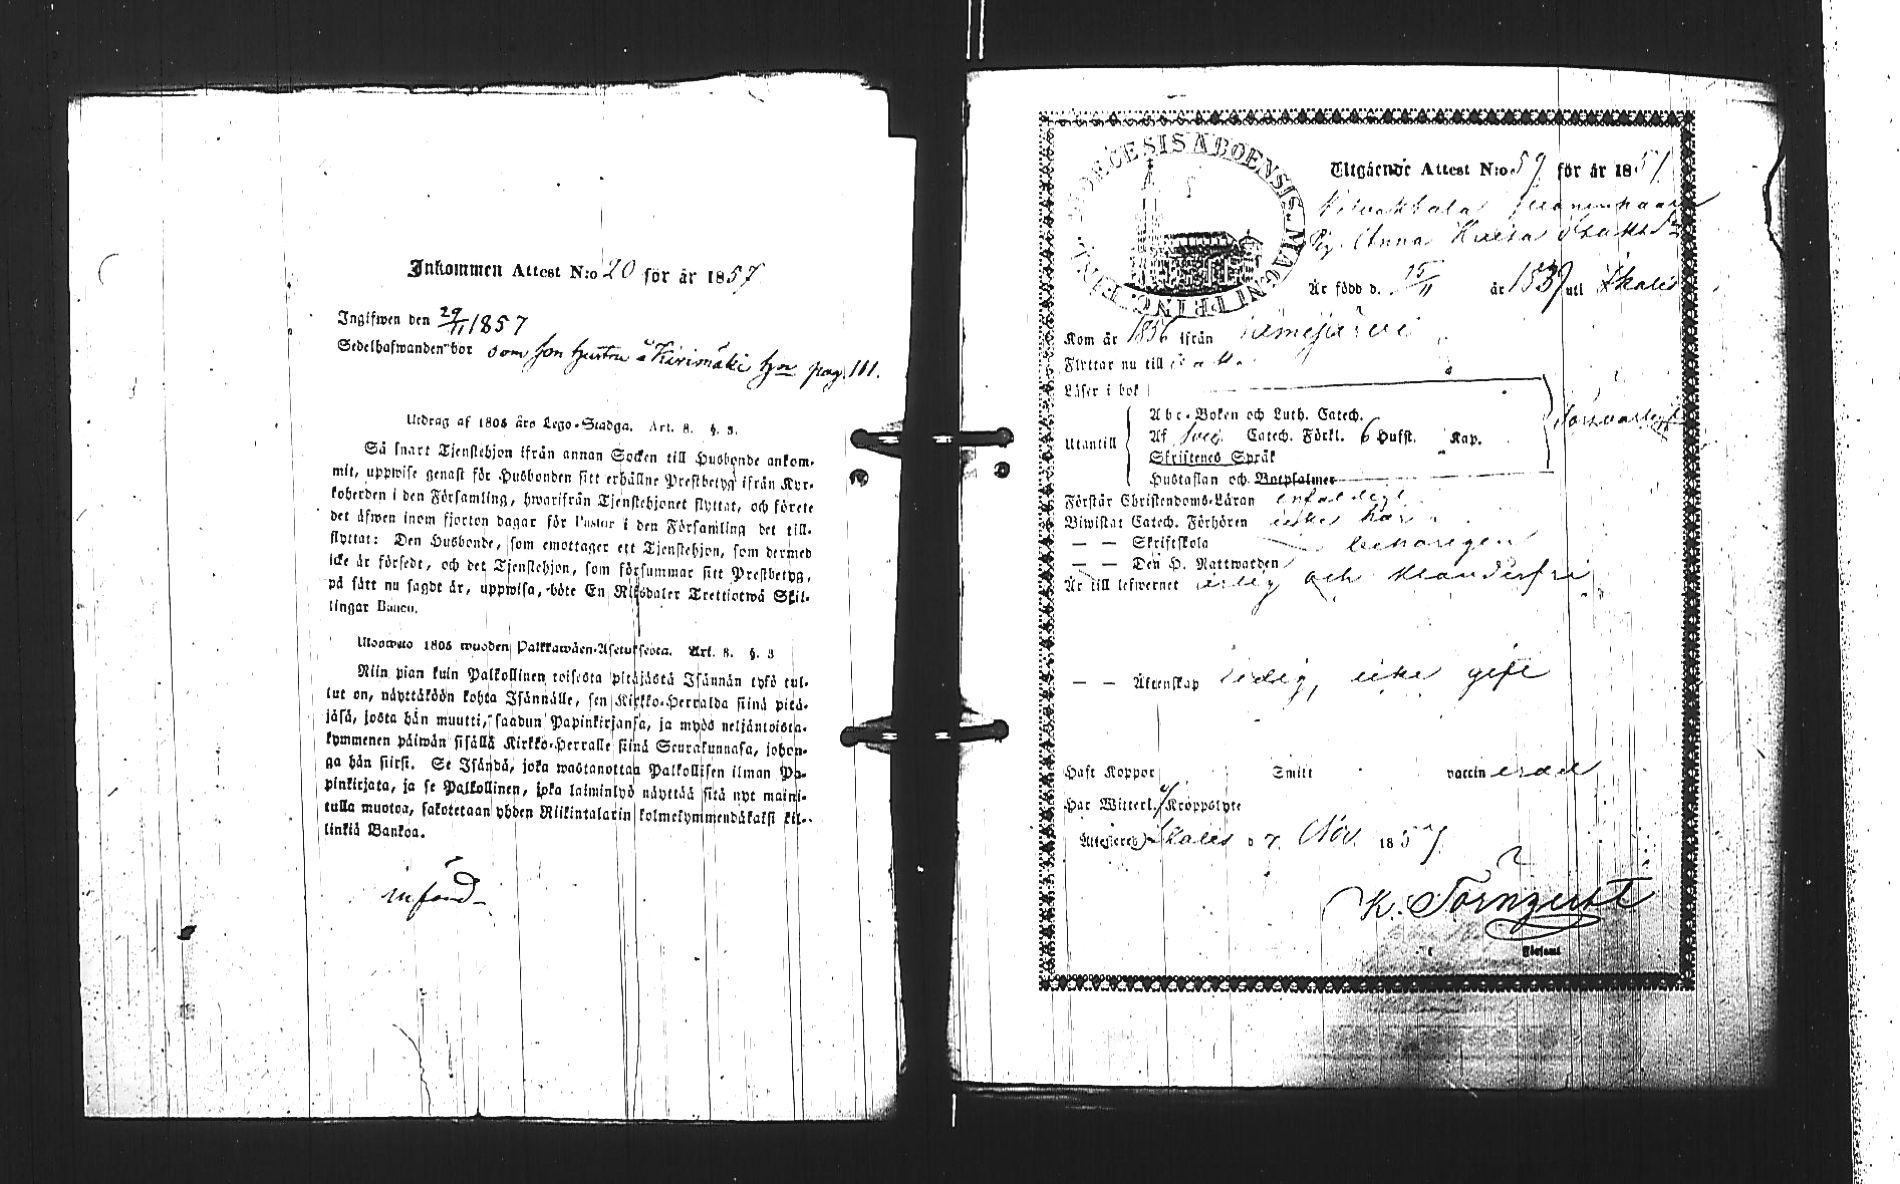 Inkommen Attest N:o 20 för år 1857
Ingifwen den 29/11 1857
Sedelhafwanden bor som hon hustru å Kirimäki hjon pag. 111.
Utdrag af 1805 års Lego-Stadga. Art. 8. §. 3.
Så snart Tjenstehjon ifrån annan Socken till Husbonde ankom-
mit, uppwise genast för Husbonden sitt erhållne Prestbetyg ifrån Kyr-
koherden i den Församling, hwarifrån Tjenstehjonet flyttat, och förete
det äfwen inom fjorton dagar för Pastor i den Församling det till-
flyttat: Den Husbonde, som emottager ett Tjenstehjon, som dermed
icke är försedt, och det Tjenstehjon, som försummar sitt Prestbetyg,
på sätt nu sagdt är, uppwisa, böte En Riksdaler Trettiotwå Skil-
lingar Banco.
Ulosweto 1805 wuoden Palkkawäen-Asetuksesta. Art. 8. §. 3
Niin pian kuin Palkollinen toisesta pitäjästä Isännän tykö tul-
lut on, näyttäköön kohta Isännälle, sen Kirkko-Herralda siinä pitä-
jäsä, josta hän muutti, saadun Papinkirjansa, ja myös neljäntoista-
kymmenen päiwän sisällä Kirkko-Herralle siinä Seurakunnasa, johon-
ga hän siirsi. Se Isändä, joka wastanottaa Palkollisen ilman Pa-
pinkirjata, ja se Palkollinen, joka laiminlyö näyttää sitä nyt maini-
tulla muotoa, sakotetaan yhden Riikintalarin kolmekymmendäkaksi kil-
linkiä Bankoa.
införd
DIOECESIS ABOENSIS. MAGNI PRINC. FINL.
Utgående Attest N:o 59 för år 1857
Pig. Anna
Är född d. 15/11 år 1839 uti Ikalis
Kom år 1856 ifrån Kemijärvi
Flyttar nu till
Läser i bok
Utantill
Abc-Boken och Luth. Catech.
Af Sveb. Catech. Förkl. 6 Hufst. Kap.
Skriftenes Språk
Hustaflan och Botpsalmer
Försvarligt
Förstår Christendoms-Läran enfaldigt
Biwistat Catech. Förhören icke här
— — Skriftskola behörigen
— — Den H. Nattwarden
Är till lefwernet ärlig och klanderfri
— — Äktenskap ledig, icke gift
Haft Koppor Smitt vaccinerad
Har Witterl. Kroppslyte
Attesteres Ikalis d 7. Nov. 1857
K. Törnqvist
Församl